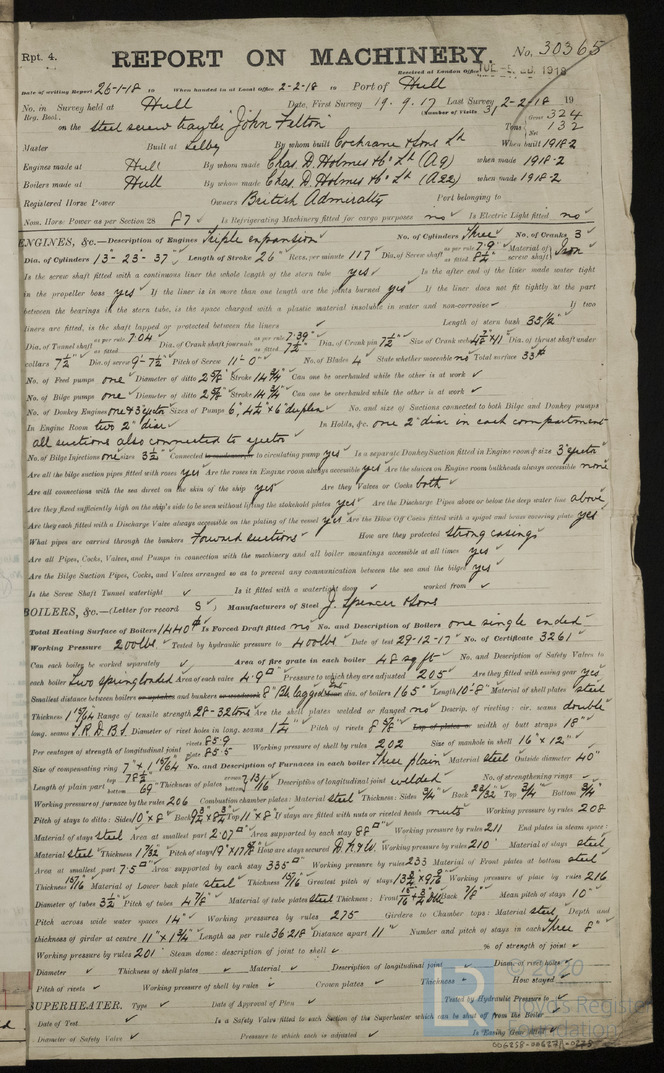 Rpt. 4.
REPORT ON MACHINERY.
No. 30365
Received at London Office
Date of writing Report 26-1-18 When handed in at Local Office 2-2-18 Port of Hull
No. in Survey held at Hull Date, First Survey 19.9.17 Last Survey 2-2-18 19
Reg. Book. (Number of Visits 31
on the Steel screw trawler "John Felton" Tons Gross 324 Net 132
Master Built at Selby By whom built Cochrane & Sons Ld When built 1918 2
Engines made at Hull By whom made Chas. D. Holmes & Co Ld (A9) when made 1918-2
Boilers made at Hull By whom made Chas. D. Holmes & Co Ld (A22) when made 1918-2
Registered Horse Power Owners British Admiralty Port belonging to
Nom. Horse Power as per Section 28 87 Is Refrigerating Machinery fitted for cargo purposes no Is Electric Light fitted no
ENGINES, &c.—Description of Engines Triple expansion No. of Cylinders Three No. of Cranks 3
Dia. of Cylinders 13-23-37" Length of Stroke 26" Revs. per minute 117 Dia. of Screw shaft as per rule 7.9" as fitted 8½" Material of screw shaft Iron
Is the screw shaft fitted with a continuous liner the whole length of the stern tube yes Is the after end of the liner made water tight
in the propeller boss yes If the liner is in more than one length are the joints burned yes If the liner does not fit tightly at the part
between the bearings in the stern tube, is the space charged with a plastic material insoluble in water and non-corrosive ✓ If two
liners are fitted, is the shaft lapped or protected between the liners ✓ Length of stern bush 35½"
Dia. of Tunnel shaft as per rule 7.04 as fitted Dia. of Crank shaft journals as per rule 7.39" as fitted 7½" Dia. of Crank pin 7½" Size of Crank webs Dia. of thrust shaft under
collars 7½" Dia. of screw 9'-7½" Pitch of Screw 11'-0" No. of Blades 4 State whether moveable no Total surface 33
No. of Feed pumps one Diameter of ditto 2⅝" Stroke 14¾" Can one be overhauled while the other is at work ✓
No. of Bilge pumps one Diameter of ditto 2⅝" Stroke 14¾" Can one be overhauled while the other is at work ✓
No. of Donkey Engines one & 3" ejector Sizes of Pumps 6", 4½" x 6" duplex No. and size of Suctions connected to both Bilge and Donkey pumps
In Engine Room two 2" diar In Holds, &c. one 2" diar in each compartment
all suctions also connected to ejector
No. of Bilge Injections one sizes 3½" Connected to circulating pump yes Is a separate Donkey Suction fitted in Engine room & size 3" ejector
Are all the bilge suction pipes fitted with roses yes Are the roses in Engine room always accessible yes Are the sluices on Engine room bulkheads always accessible none
Are all connections with the sea direct on the skin of the ship yes Are they Valves or Cocks both
Are they fixed sufficiently high on the ship's side to be seen without lifting the stokehold plates yes Are the Discharge Pipes above or below the deep water line above
Are they each fitted with a Discharge Valve always accessible on the plating of the vessel yes Are the Blow Off Cocks fitted with a spigot and brass covering plate yes
What pipes are carried through the bunkers Forward suctions How are they protected strong casings
Are all Pipes, Cocks, Valves, and Pumps in connection with the machinery and all boiler mountings accessible at all times yes
Are the Bilge Suction Pipes, Cocks, and Valves arranged so as to prevent any communication between the sea and the bilges yes
Is the Screw Shaft Tunnel watertight ✓ Is it fitted with a watertight door ✓ worked from ✓
BOILERS, &c.—(Letter for record S) Manufacturers of Steel J. Spencer & Sons
Total Heating Surface of Boilers 1440 Is Forced Draft fitted no No. and Description of Boilers one single ended
Working Pressure 200 lbs Tested by hydraulic pressure to 400 lbs Date of test 29-12-17 No. of Certificate 3261
Can each boiler be worked separately ✓ Area of fire grate in each boiler 48 sq ft No. and Description of Safety Valves to
each boiler Two spring loaded Area of each valve 4.9 Pressure to which they are adjusted 205 Are they fitted with easing gear yes
Smallest distance between boilers or uptakes and bunkers or woodwork 8" Bk lagged dia. of boilers 165" Length 10'-8" Material of shell plates steel
Thickness 1 15/64 Range of tensile strength 28-32 tons Are the shell plates welded or flanged no Descrip. of riveting: cir. seams double
long. seams T.R.D.B.S Diameter of rivet holes in long. seams 1¼" Pitch of rivets 8⅝" Lap of plates or width of butt straps 18"
Per centages of strength of longitudinal joint rivets 85.9 plate 85.5 Working pressure of shell by rules 202 Size of manhole in shell 16" x 12"
Size of compensating ring 7" x 1 15/64 No. and Description of Furnaces in each boiler Three plain Material steel Outside diameter 40"
Length of plain part top 78½" bottom 69" Thickness of plates crown bottom 13/16 Description of longitudinal joint welded No. of strengthening rings ✓
Working pressure of furnace by the rules 206 Combustion chamber plates: Material steel Thickness: Sides ¾" Back 22/32" Top ¾" Bottom ¾"
Pitch of stays to ditto: Sides 10" x 8" Back Top 11" x 8" If stays are fitted with nuts or riveted heads nuts Working pressure by rules 208
Material of stays steel Area at smallest part 2.07 Area supported by each stay 88 Working pressure by rules 211 End plates in steam space:
Material steel Thickness 1 7/32 Pitch of stays How are stays secured Working pressure by rules 210 Material of stays steel
Area at smallest part 7.5 Area supported by each stay 335 Working pressure by rules 233 Material of Front plates at bottom steel
Thickness 15/16 Material of Lower back plate steel Thickness 15/16 Greatest pitch of stays Working pressure of plate by rules 216
Diameter of tubes 3½" Pitch of tubes 4⅞" Material of tube plates steel Thickness: Front Back ⅞" Mean pitch of stays 10"
Pitch across wide water spaces 14" Working pressures by rules 275 Girders to Chamber tops: Material steel Depth and
thickness of girder at centre 11" x 1¾" Length as per rule 36 218 Distance apart 11" Number and pitch of stays in each Three 8"
Working pressure by rules 201 Steam dome: description of joint to shell ✓ % of strength of joint ✓
Diameter ✓ Thickness of shell plates ✓ Material ✓ Description of longitudinal joint ✓ Diam. of rivet holes ✓
Pitch of rivets ✓ Working pressure of shell by rules ✓ Crown plates ✓ Thickness ✓ How stayed ✓
SUPERHEATER. Type ✓ Date of Approval of Plan ✓ Tested by Hydraulic Pressure to ✓
Date of Test ✓ Is a Safety Valve fitted to each Section of the Superheater which can be shut off from the Boiler ✓
Diameter of Safety Valve ✓ Pressure to which each is adjusted ✓ Is Easing Gear fitted ✓
© 2020
Lloyd's Register
Foundation